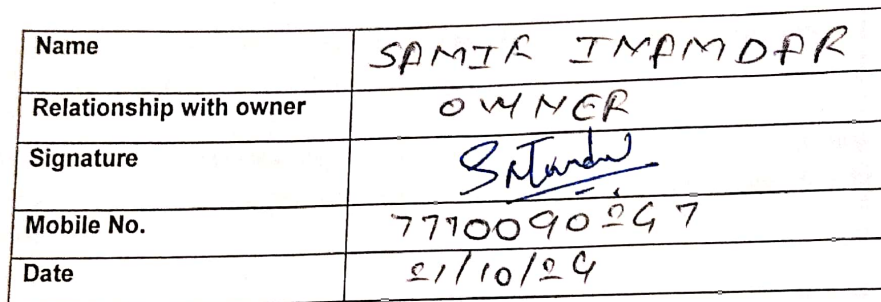 Name SAMIR INAMDAR
Relationship with owner OWNER
Signature
Mobile No. 7770090247
Date 21/10/24